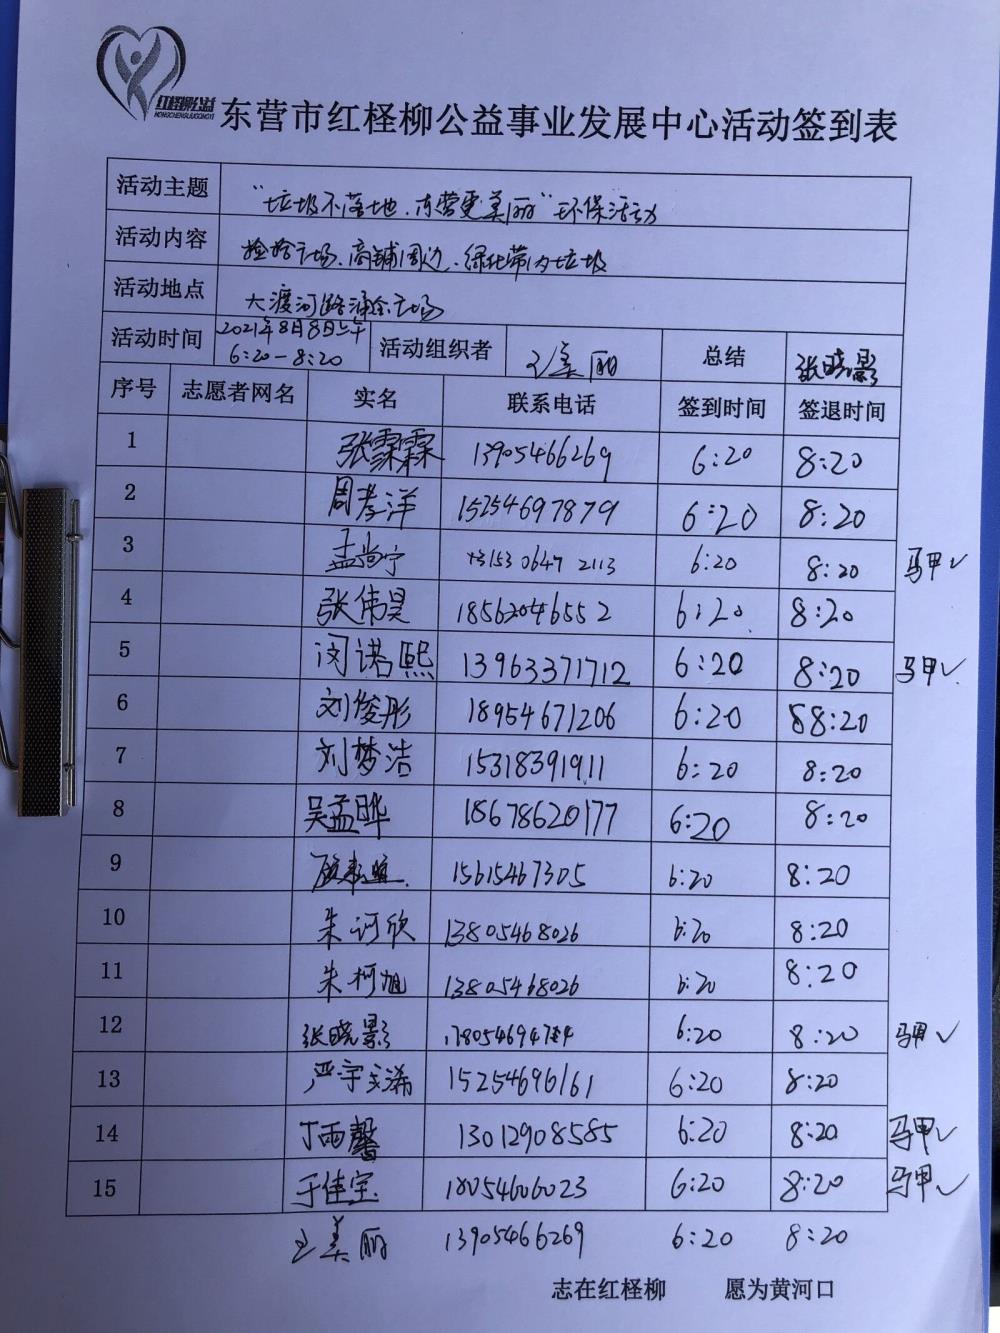 红柽柳公益
HONGCHENGLIUGONGYI
东营市红柽柳公益事业发展中心活动签到表
活动主题 “垃圾不落地.东营更美丽”环保活动
活动内容 捡拾市场、商铺周边、绿化带内垃圾
活动地点 大渡河路浦余市场
活动时间 2021年8月8日上午 6:20-8:20 活动组织者 王美丽 总结 张晓影
序号 志愿者网名 实名 联系电话 签到时间 签退时间
1 张霂霖 13905466269 6:20 8:20
2 周孝洋 15254697879 6:20 8:20
3 孟尚宁 153 0647 2113 6:20 8:20 马甲✓
4 张伟昊 18562046552 6:20 8:20
5 闵诺熙 13963371712 6:20 8:20 马甲✓
6 刘俊彤 18954671206 6:20 88:20
7 刘梦洁 15318391911 6:20 8:20
8 吴孟晔 18678620177 6:20 8:20
9 15615467305 6:20 8:20
10 朱诃欣 13805468026 6:20 8:20
11 朱柯旭 13805468026 6:20 8:20
12 张晓影 6:20 8:20 马甲✓
13 严宇 15254696161 6:20 8:20
14 丁雨馨 13012908585 6:20 8:20 马甲✓
15 于佳宝 18054606023 6:20 8:20 马甲✓
王美丽 13905466269 6:20 8:20
志在红柽柳 愿为黄河口